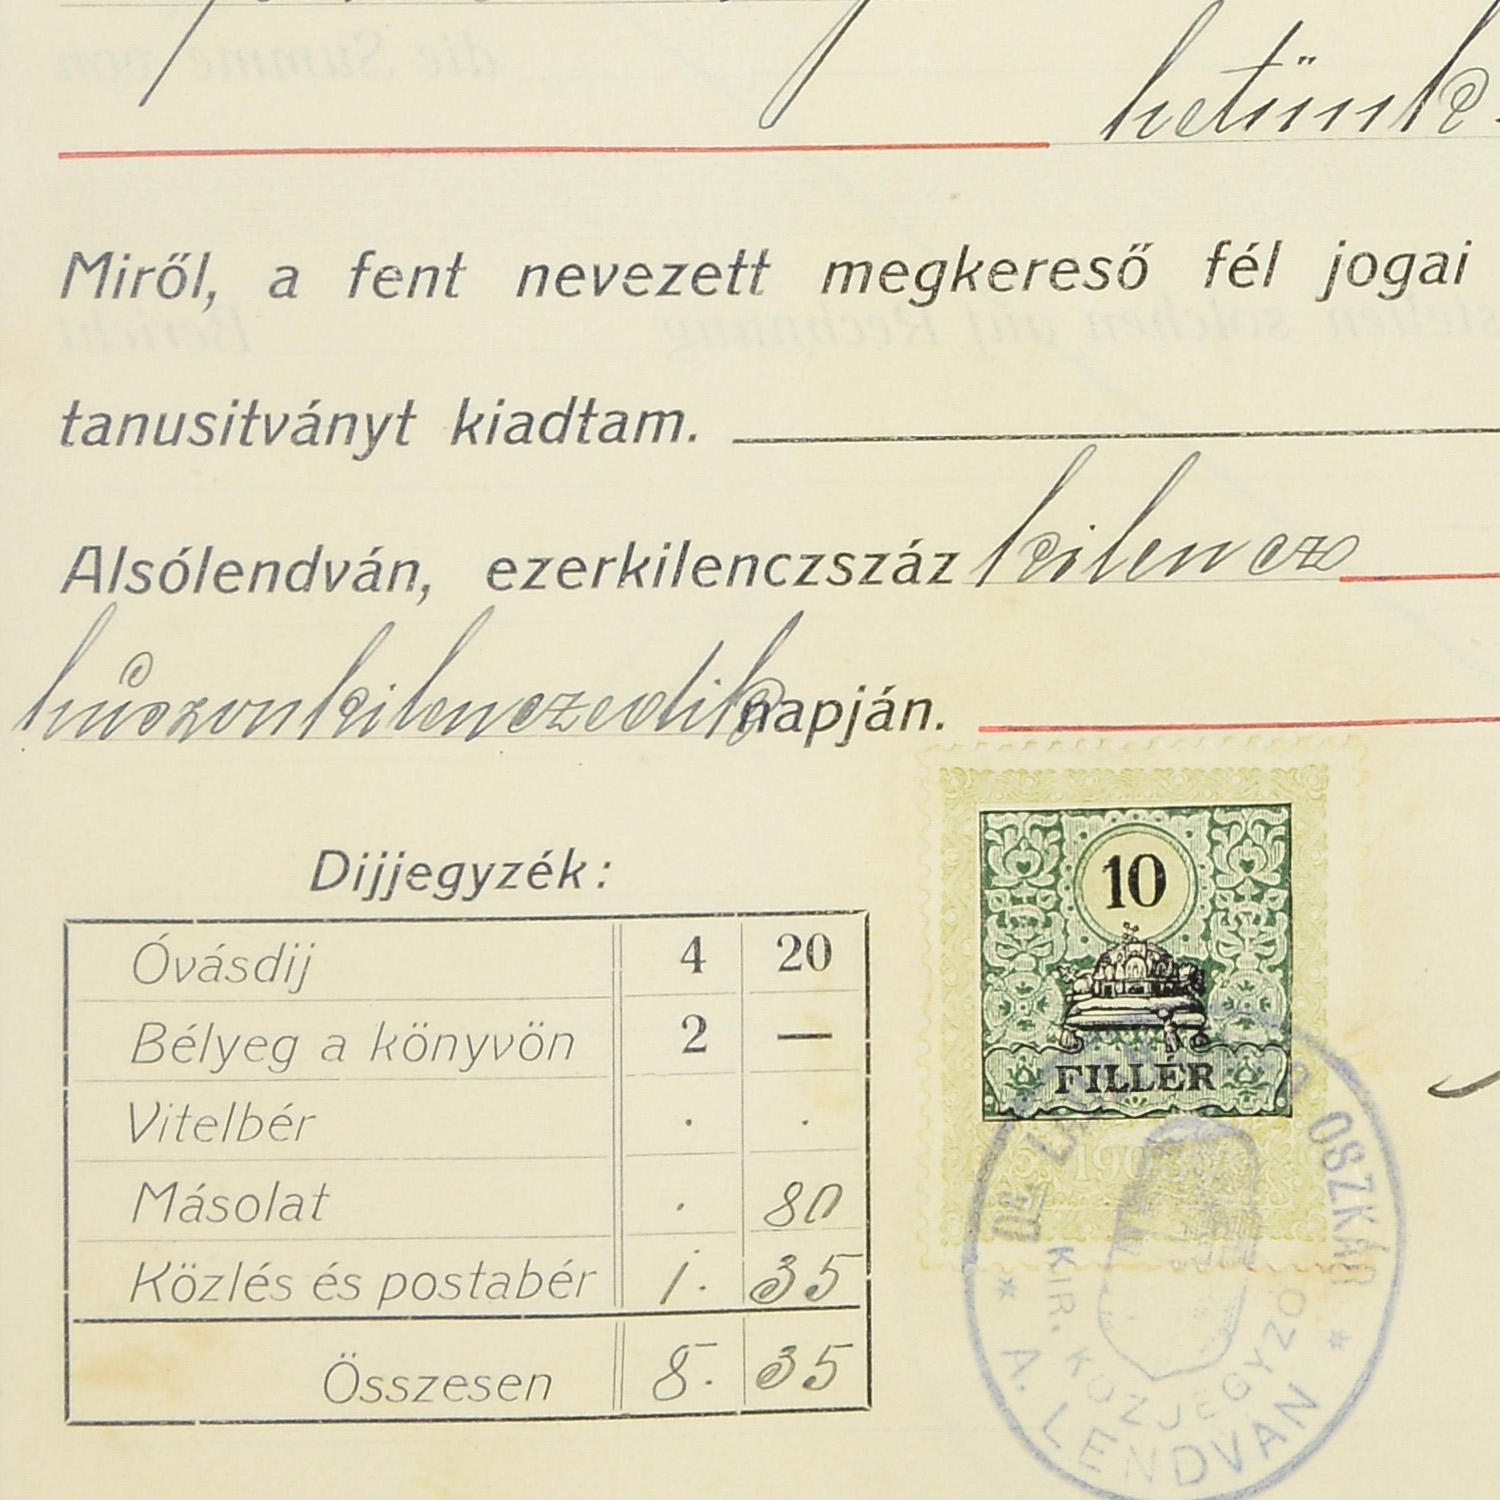 hetünk.
Miről, a fent nevezett megkereső fél jogai
tanusitványt kiadtam.
Alsólendván, ezerkilenczszáz kilencz
húszonkilenczedik napján.
Dijjegyzék:
Óvásdij 4 20
Bélyeg a könyvön 2 —
Vitelbér . .
Másolat . 80
Közlés és postabér 1. 35
Összesen 8. 35
10
FILLÉR
1903
Dr. OSZKÁR
KIR. KÖZJEGYZŐ
* A. LENDVAN *